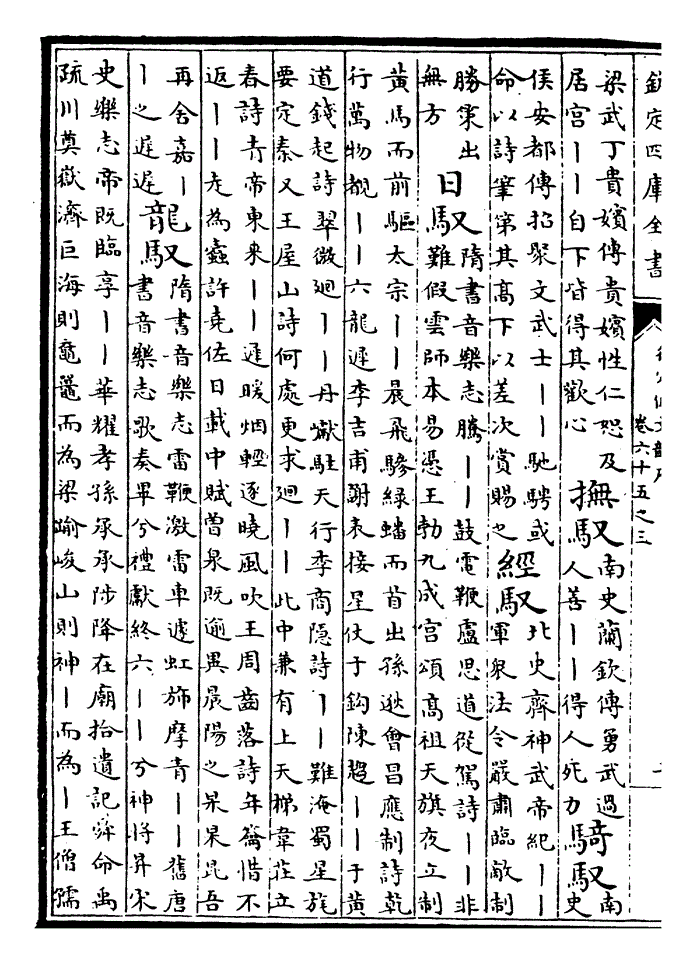 欽定四庫全書
卷六十五之三
梁武丁貴嬪傳貴嬪性仁恕及
居宫丨丨自下皆得其歡心
撫馭
南史蘭欽傳勇武過
人善丨丨得人死力
騎馭
南
史
侯安都傳招聚文武士丨丨馳騁或
命以詩筆第其髙下以差次賞賜之
經馭
北史齊神武帝紀丨丨
軍衆法令嚴肅臨敵制
勝䇿出
無方
日馭
隋書音樂志騰丨丨鼓電鞭盧思道從駕詩丨丨非
難假雲師本易憑王勃九成宫頌髙祖天旗夜立制
黄馬而前驅太宗丨丨晨飛驂緑螭而首出孫逖會昌應制詩乾
行萬物覩丨丨六龍遲李吉甫謝表接星仗于鈎陳趨丨丨于黄
道錢起詩翠微廻丨丨丹巘駐天行李商隠詩丨丨雖淹蜀星旄
要定秦又王屋山詩何處更求廻丨丨此中兼有上天梯韋莊立
春詩青帝東来丨丨遲暖烟輕逐曉風吹王周齒落詩年齡惜不
返丨丨走為蠧許堯佐日載中賦曽泉既逾異晨陽之杲杲昆吾
再舍嘉丨
丨之遲遲
龍馭
隋書音樂志雷鞭激雷車遽虹斾摩青丨丨舊唐
書音樂志歌奏畢兮禮獻終六丨丨兮神将昇宋
史樂志帝既臨享丨丨華耀孝孫承承陟降在廟拾遺記舜命禹
疏川奠嶽濟巨海則黿鼉而為梁踰峻山則神丨而為丨王僧孺